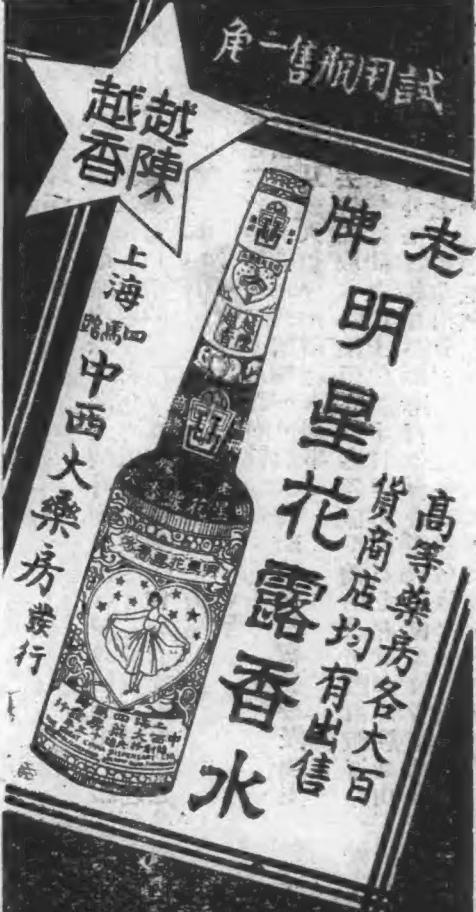 試用瓶售二角
越陳
越香
老牌
明星花露香水
高等藥房各大百
貨商店均有出售
上海
四馬路
中西大藥房發行
越陳
越香
明星花露香水